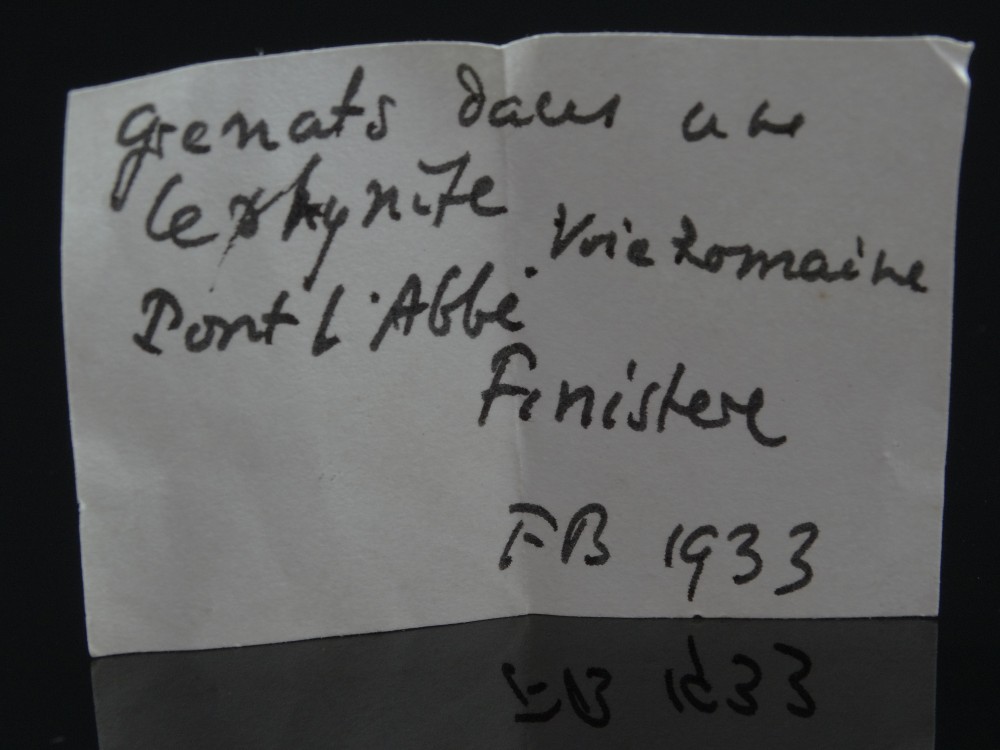 Grenats dans une
leptynite
Voie Romaine
Pont l'Abbé
Finistere
FB 1933